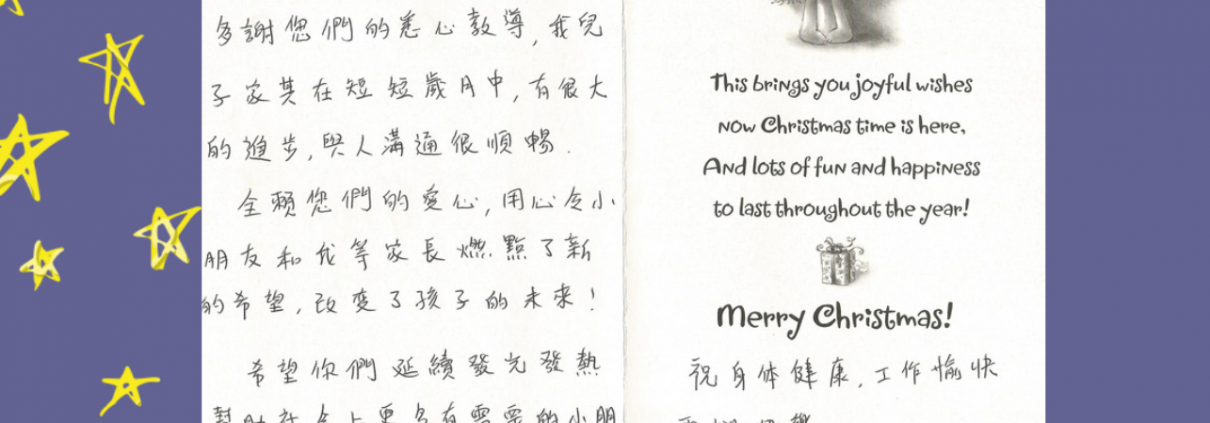 多謝您們的悉心教導,我兒
子家其在短短歲月中,有很大
的進步,與人溝通很順暢.
全賴您們的愛心,用心令小
朋友和我等家長燃點了新
的希望,改变了孩子的未來!
希望你們延續發光發熱
幫助社会上更多有需要的小朋
This brings you joyful wishes
now Christmas time is here,
And lots of fun and happiness
to last throughout the year!
Merry Christmas!
祝身体健康,工作愉快